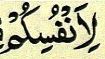 لِاَنْفُسِكُمْ